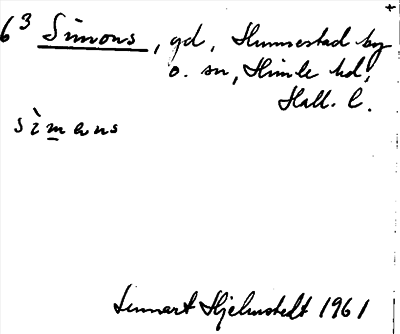 6³ Simons, gd, Hunnestad by
o. sn, Himle hd,
Hall. l.
sìmans
Lennart Hjelmstedt 1961